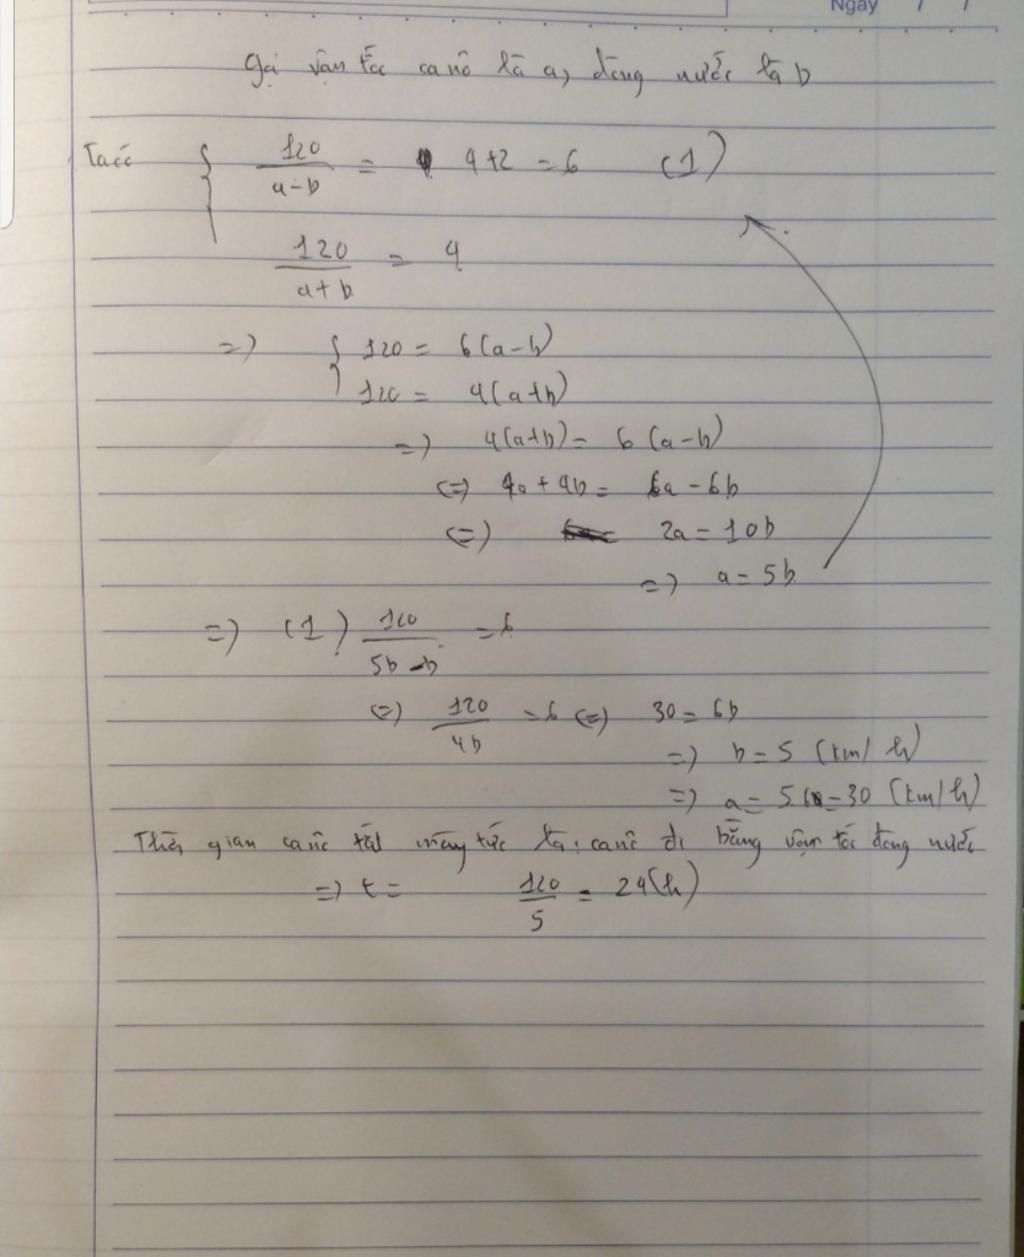 Ngày / /
Gọi vận tốc canô là a, dòng nước là b
Ta có { 120/(a-b) = 4+2 = 6 (1)
120/(a+b) = 4
=> { 120 = 6(a-b)
120 = 4(a+b)
=> 4(a+b) = 6(a-b)
<=> 4a + 4b = 6a - 6b
<=> 2a = 10b
=> a = 5b
=> (1) 120/(5b-b) = 6
<=> 120/4b = 6 <=> 30 = 6b
=> b = 5 (km/h)
=> a = 5b = 30 (km/h)
Thời gian canô tắt máy tức là canô đi bằng vận tốc dòng nước
=> t = 120/5 = 24(h)